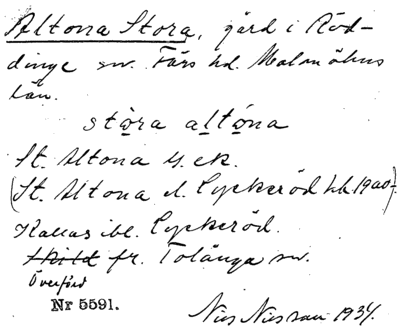 Altona Stora, gård i Röd-
dinge sn. Färs hd. Malmöhus
län.
stòra altóna
St. Altona G. ek.
(St. Altona el. Lyckeröd hk 1900-.)
Kallas ibl. Lyckeröd.
Skild fr. Tolånga sn.
Överförd
Nr 5591.
Nils Nilsson 1934.